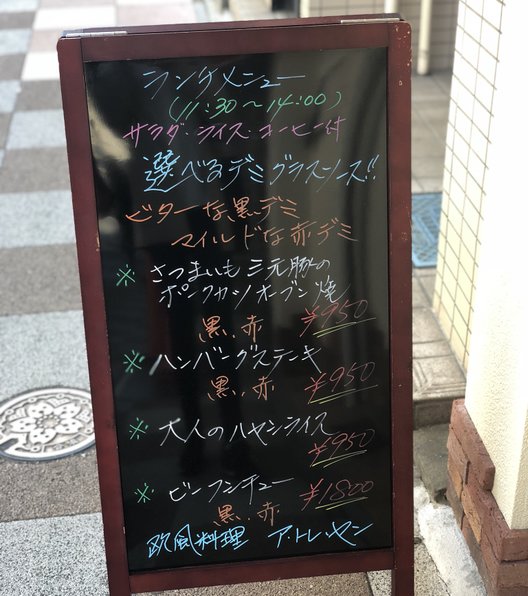 ランチメニュー
(11:30〜14:00)
サラダ・ライス・コーヒー付
選べるデミグラスソース!!
ビターな黒デミ
マイルドな赤デミ
※ さつまいも三元豚の
ポークカツオーブン焼
黒、赤 ¥950
※ ハンバーグステーキ
黒、赤 ¥950
※ 大人のハヤシライス
¥950
※ ビーフシチュー ¥1800
黒、赤
欧風料理 ア・トレ・ヤン